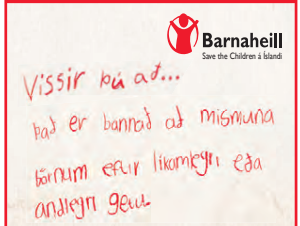 Barnaheill
Save the Children á Íslandi
Vissir þú að...
það er bannað að mismuna
börnum eftir líkamlegri eða
andlegri getu.